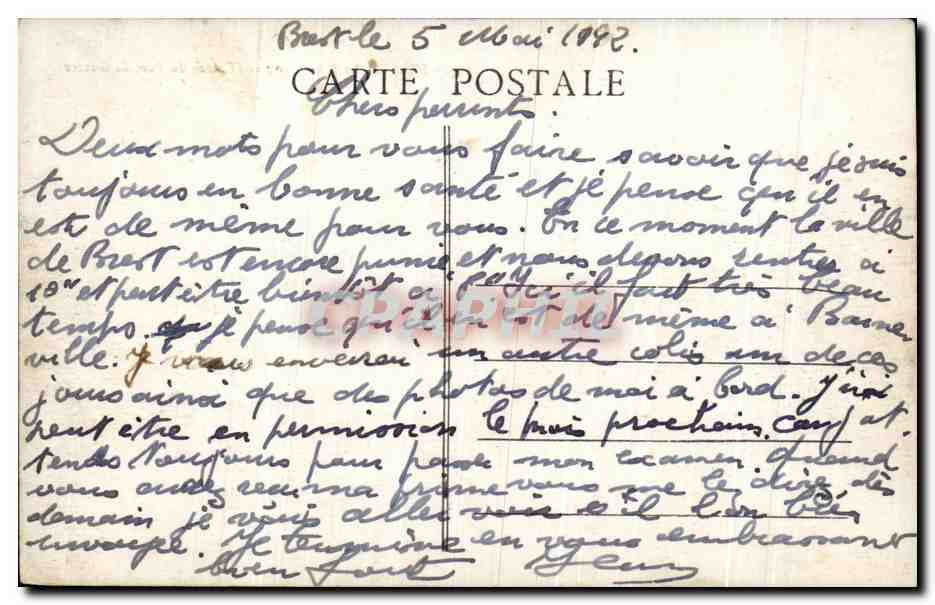 Brest le 5 Mai 1942.
CARTE POSTALE
Chers parrents.
Deux mots pour vous faire savoir que je suis
toujours en bonne santé et je pense qu'il en
est de même pour vous. En ce moment la ville
de Brest est encore punie et nous devons rentrer à
et peut être bientôt à Ici il fait très beau
temps je pense qu'il en est de même à
ville. J'y enverrai un autre colis un de ces
jours ainsi que des photos de moi à bord. J'irai
peut être en permission le mois prochain, car j'at
tends toujours pour passer mon examen. Quand
vous aurez reçu ma vous me le dire dès
demain je vais aller voir s'il
Je termine en vous embrassant
bien fort Jean